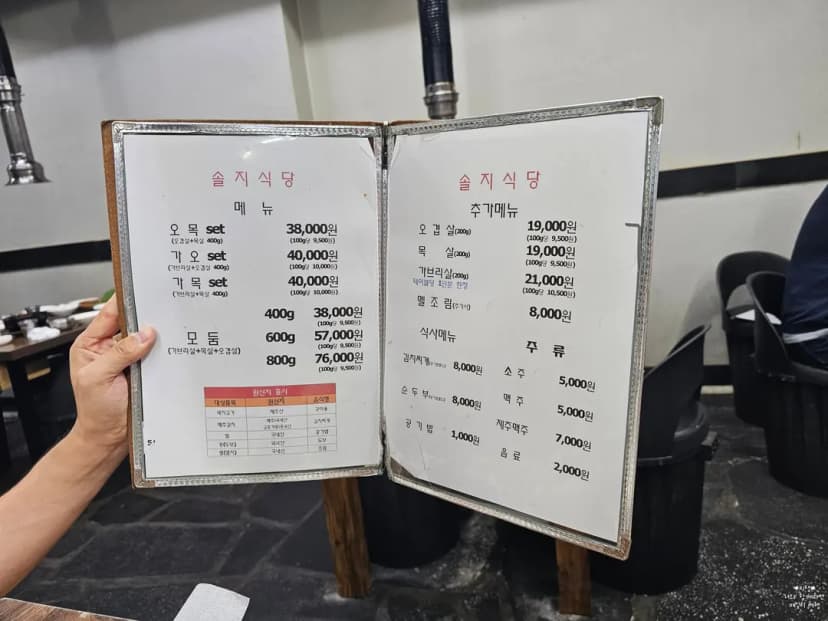 솔지식당
메 뉴
오 목 set 38,000원
(오겹살+목살 400g) (100g당 9,500원)
가 오 set 40,000원
(가브리살+오겹살 400g) (100g당 10,000원)
가 목 set 40,000원
(가브리살+목살 400g) (100g당 10,000원)
400g 38,000원
(100g당 9,500원)
모 둠 600g 57,000원
(가브리살+목살+오겹살) (100g당 9,500원)
800g 76,000원
(100g당 9,500원)
원산지 표시
대상품목 원산지 음식명
돼지고기 제주산
배추김치 김치찌개
쌀 국내산 공기밥
솔지식당
추가메뉴
오 겹 살(200g) 19,000원
(100g당 9,500원)
목 살(200g) 19,000원
(100g당 9,500원)
가브리살(200g) 21,000원
테이블당 1인분 한정 (100g당 10,500원)
멜 조 림(추가시) 8,000원
식사메뉴
김치찌개 8,000원
순 두 부 8,000원
공 기 밥 1,000원
주 류
소 주 5,000원
맥 주 5,000원
제주맥주 7,000원
음 료 2,000원